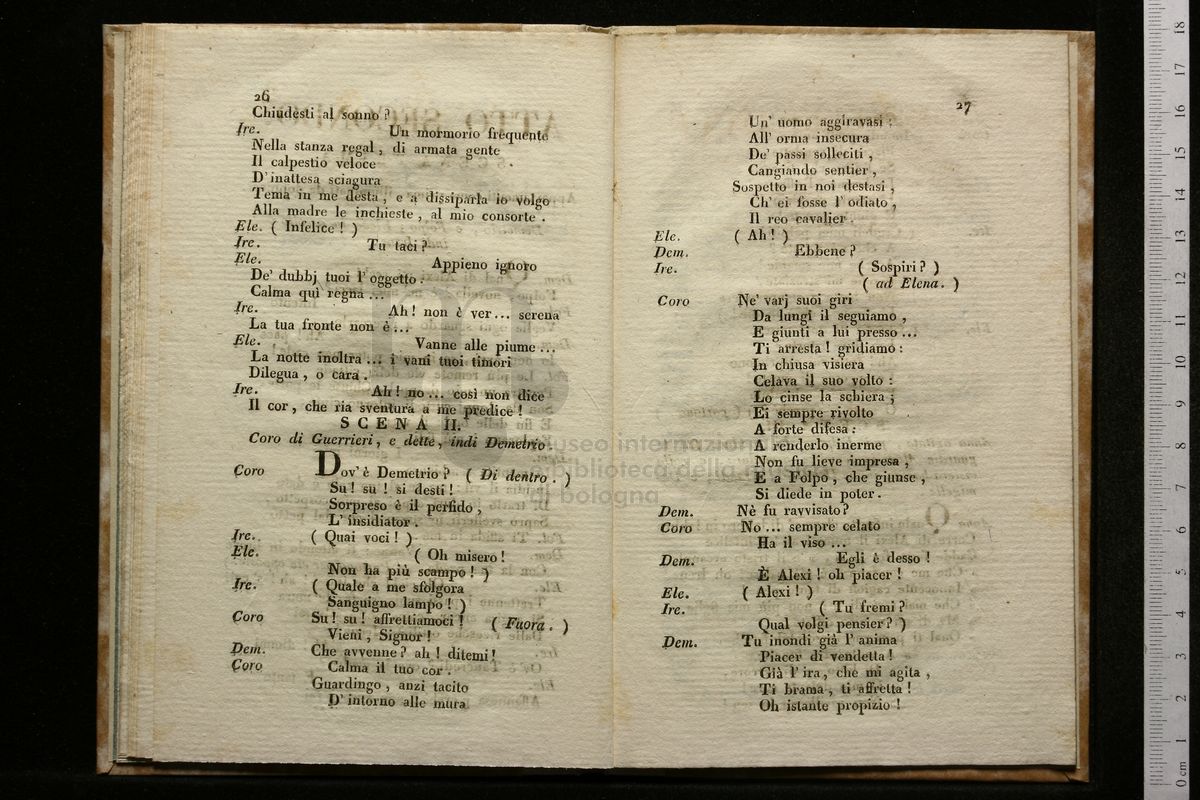 26
Chiudesti al sonno?
Ire. Un mormorio frequente
Nella stanza regal, di armata gente
Il calpestio veloce
D'inattesa sciagura
Tema in me desta, e a dissiparla io volgo
Alla madre le inchieste, al mio consorte.
Ele. (Infelice!)
Ire. Tu taci?
Ele. Appieno ignoro
De' dubbj tuoi l'oggetto.
Calma quì regna...
Ire. Ah! non è ver... serena
La tua fronte non è...
Ele. Vanne alle piume...
La notte inoltra... i vani tuoi timori
Dilegua, o cara.
Ire. Ah! no... così non dice
Il cor, che ria sventura a me predice!
SCENA II.
Coro di Guerrieri, e dette, indi Demetrio.
Coro Dov'è Demetrio? (Di dentro.)
Su! su! si desti!
Sorpreso è il perfido,
L'insidiator.
Ire. (Quai voci!)
Ele. (Oh misero!
Non ha più scampo!)
Ire. (Quale a me sfolgora
Sanguigno lampo!)
Coro Su! su! affrettiamoci! (Fuora.)
Vieni, Signor!
Dem. Che avvenne? ah! ditemi!
Coro Calma il tuo cor.
Guardingo, anzi tacito
D'intorno alle mura
27
Un' uomo aggiravasi:
All' orma insecura
De' passi solleciti,
Cangiando sentier,
Sospetto in noi destasi,
Ch' ei fosse l'odiato,
Il reo cavalier.
Ele. (Ah!)
Dem. Ebbene?
Ire. (Sospiri?)
(ad Elena.)
Coro Ne' varj suoi giri
Da lungi il seguiamo,
E giunti a lui presso...
Ti arresta! gridiamo:
In chiusa visiera
Celava il suo volto:
Lo cinse la schiera;
Ei sempre rivolto
A forte difesa:
A renderlo inerme
Non fu lieve impresa,
E a Folpo, che giunse,
Si diede in poter.
Dem. Nè fu ravvisato?
Coro No... sempre celato
Ha il viso...
Dem. Egli è desso!
È Alexi! oh piacer!
Ele. (Alexi!)
Ire. (Tu fremi?
Qual volgi pensier?)
Dem. Tu inondi già l'anima
Piacer di vendetta!
Già l'ira, che mi agita,
Ti brama, ti affretta!
Oh istante propizio!
museo internazionale
e biblioteca della musica
di bologna
0 cm 1 2 3 4 5 6 7 8 9 10 11 12 13 14 15 16 17 18